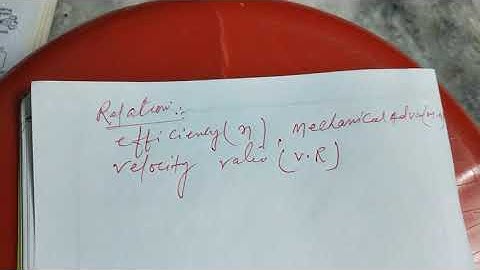 Relation:-
efficiency(η), Mechanical Adva(M.A)
velocity ratio (V.R)